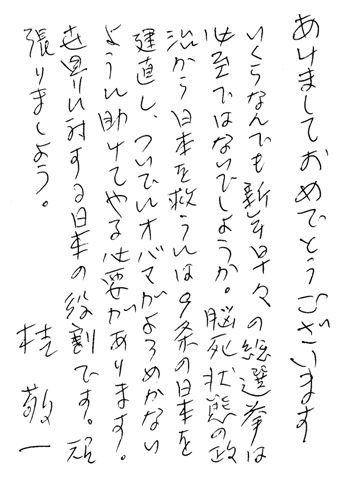 あけましておめでとうございます
いくらなんでも新年早々の総選挙は
必至ではないでしょうか。脳死状態の政
治から日本を救うには9条の日本を
建直し、ついでにオバマがよろめかない
ように助けてやる必要があります。
世界に対する日本の役割です。頑
張りましょう。
桂 敬一